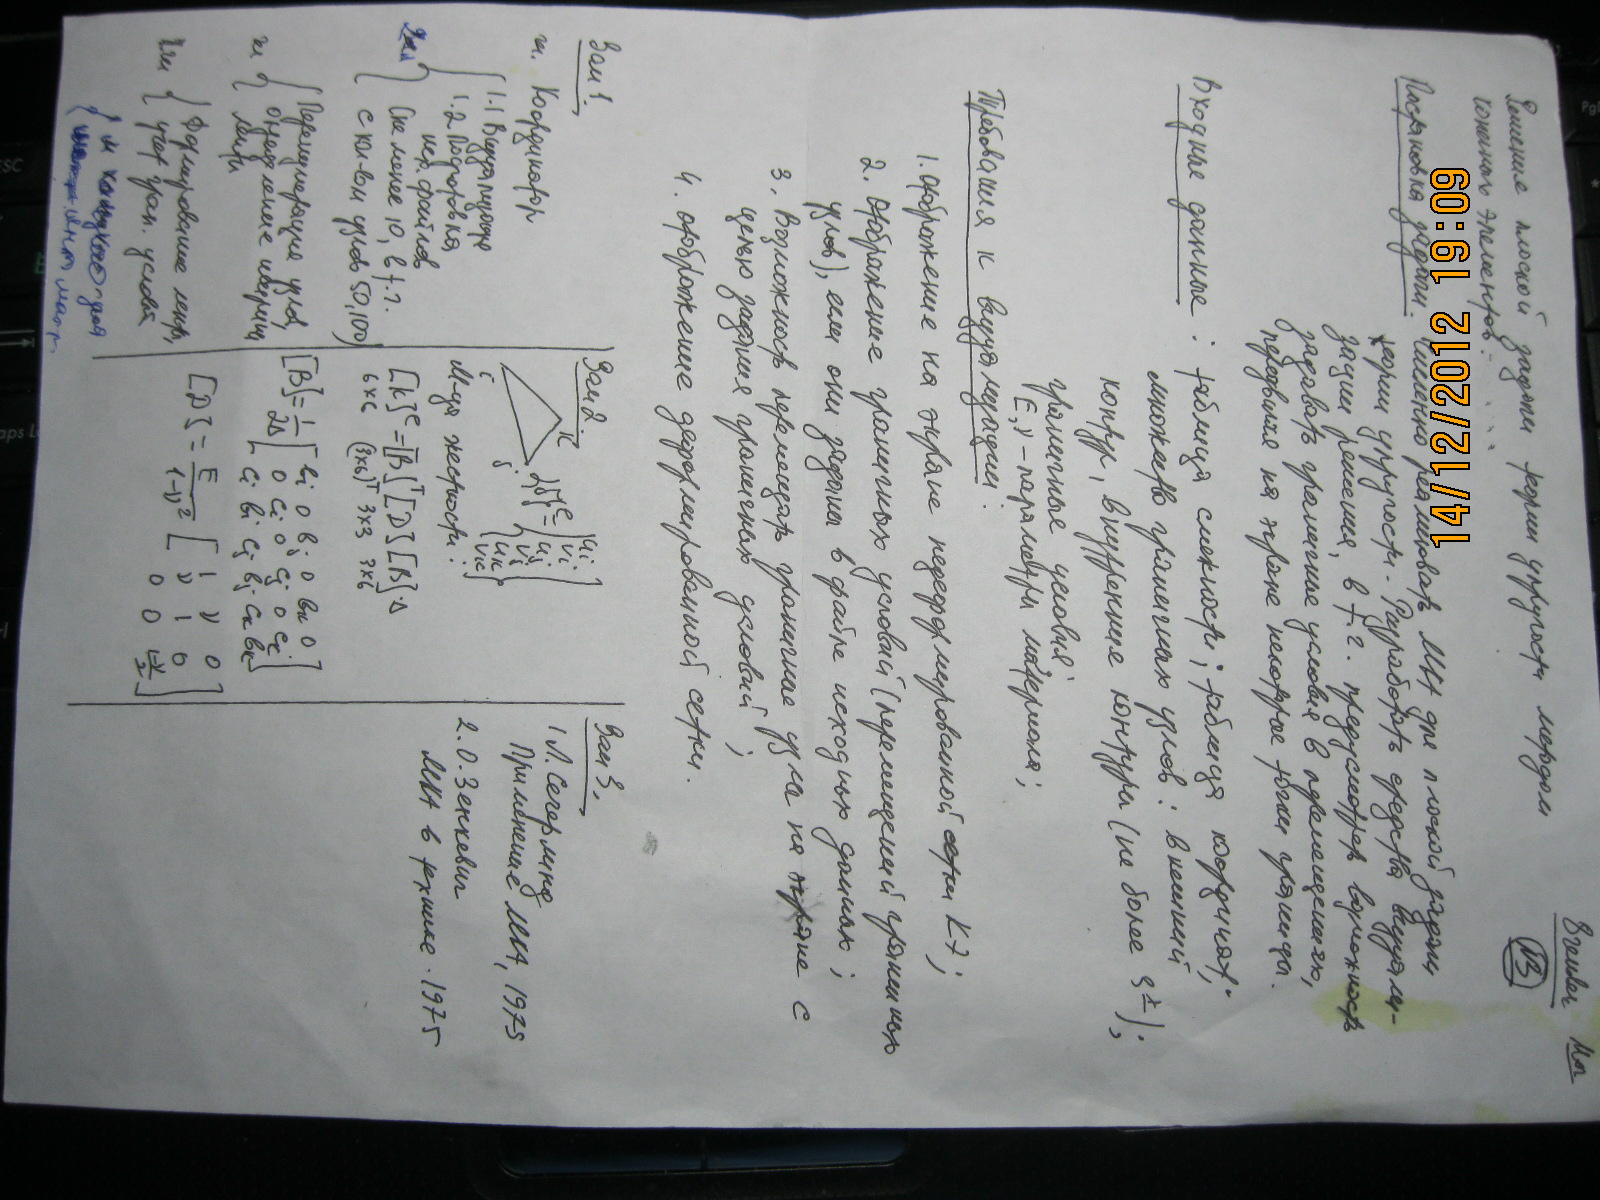 Решение плоской задачи теории упругости методом
конечных элементов.
№3
Постановка задачи: Численно реализовать МКЭ для плоской задачи
теории упругости. Разработать средства визуали-
зации решения, в т.ч. предусмотреть возможность
задавать граничные условия в перемещениях,
передвигая на экране некоторые точки границы.
Входные данные: таблица смежности; таблица координат;
множества граничных узлов: внешний
контур, внутренние контуры (не более
граничные условия;
E, ν - параметры материала;
Требования к визуализации:
1. Отображение на экране недеформированной сетки КЭ;
2. Отображение граничных условий (перемещений граничных
узлов), если они заданы в файле исходных данных;
3. Возможность перемещать граничные узлы на экране с
целью задания граничных условий;
4. Отображение деформированной сетки.
Зам 1.
Координатор
1.1 Визуализатор
1.2 Подготовка
исх. файлов
(не менее 10, в т.ч.
с кол-вом узлов 50, 100)
Перенумерация узлов,
определение ширины
ленты
Формирование ленты,
учет гран. условий
Зам 2.
k
j
i
{δ}ᵉ =
uᵢ
vᵢ
uⱼ
vⱼ
uₖ
vₖ
М-ца жесткости:
[k]ᵉ = [B]ᵀ[D][B]Δ
6×6 (3×6)ᵀ 3×3 3×6
[B] = 1/2Δ [ bᵢ 0 bⱼ 0 bₖ 0
0 cᵢ 0 cⱼ 0 cₖ
cᵢ bᵢ cⱼ bⱼ cₖ bₖ ]
[D] = E/1-ν² [ 1 ν 0
ν 1 0
0 0 1-ν/2 ]
Зам 3.
1. Л. Сегерлинд
Применение МКЭ, 1975
2. О. Зенкевич
МКЭ в технике. 1975
14/12/2012 19:09